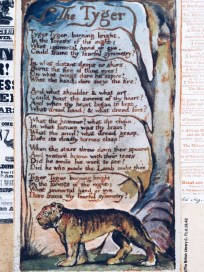 The Tyger
Tyger Tyger, burning bright,
In the forests of the night;
What immortal hand or eye,
Could frame thy fearful symmetry?
In what distant deeps or skies
Burnt the fire of thine eyes?
On what wings dare he aspire?
What the hand, dare sieze the fire?
And what shoulder, & what art,
Could twist the sinews of thy heart?
And when thy heart began to beat,
What dread hand? & what dread feet?
What the hammer? what the chain,
In what furnace was thy brain?
What the anvil? what dread grasp,
Dare its deadly terrors clasp!
When the stars threw down their spears
And water'd heaven with their tears:
Did he smile his work to see?
Did he who made the Lamb make thee?
Tyger Tyger burning bright,
In the forests of the night:
What immortal hand or eye,
Dare frame thy fearful symmetry?